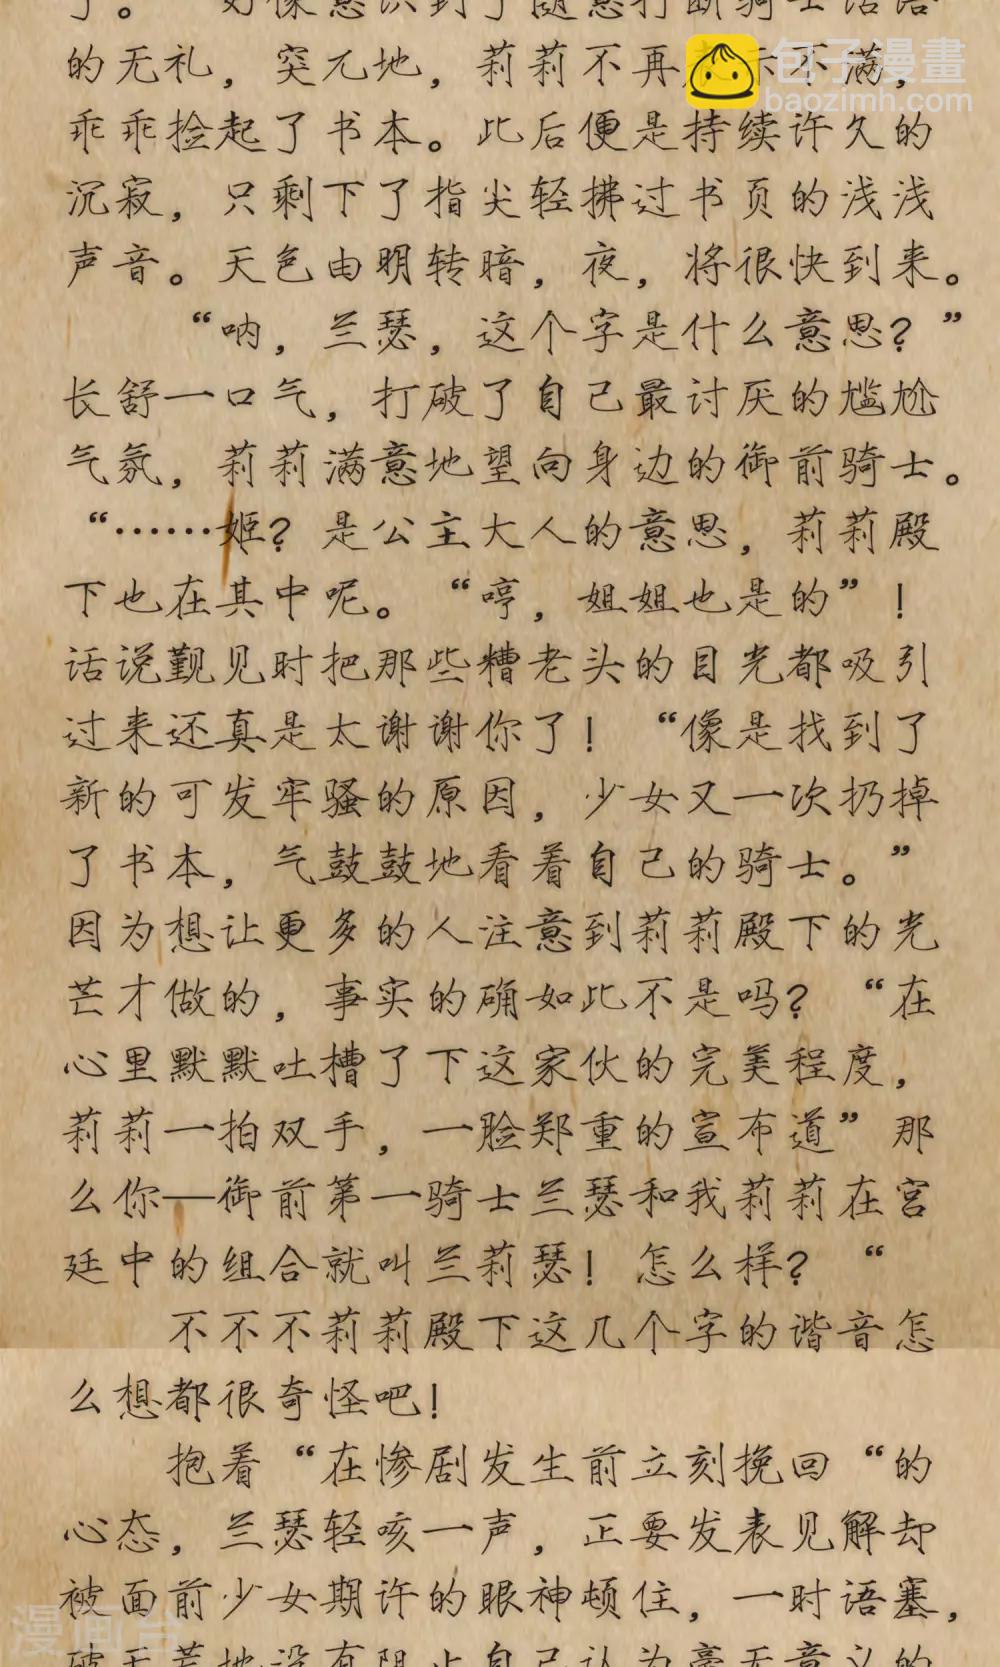 了。 好像意识到了随意打断骑士话语
的无礼，突兀地，莉莉不再表示不满，
包子漫畫
baozimh.com
乖乖捡起了书本。此后便是持续许久的
沉寂，只剩下了指尖轻拂过书页的浅浅
声音。天色由明转暗，夜，将很快到来。
“呐，兰瑟，这个字是什么意思？”
长舒一口气，打破了自己最讨厌的尴尬
气氛，莉莉满意地望向身边的御前骑士。
“……姬？是公主大人的意思，莉莉殿
下也在其中呢。“哼，姐姐也是的”！
话说觐见时把那些糟老头的目光都吸引
过来还真是太谢谢你了！“像是找到了
新的可发牢骚的原因，少女又一次扔掉
了书本，气鼓鼓地看着自己的骑士。”
因为想让更多的人注意到莉莉殿下的光
芒才做的，事实的确如此不是吗？“在
心里默默吐槽了下这家伙的完美程度，
莉莉一拍双手，一脸郑重的宣布道”那
么你—御前第一骑士兰瑟和我莉莉在宫
廷中的组合就叫兰莉瑟！怎么样？“
不不不莉莉殿下这几个字的谐音怎
么想都很奇怪吧！
抱着“在惨剧发生前立刻挽回“的
心态，兰瑟轻咳一声，正要发表见解却
被面前少女期许的眼神顿住，一时语塞，
漫画台
破天荒地没有阻止自己认为毫无意义的